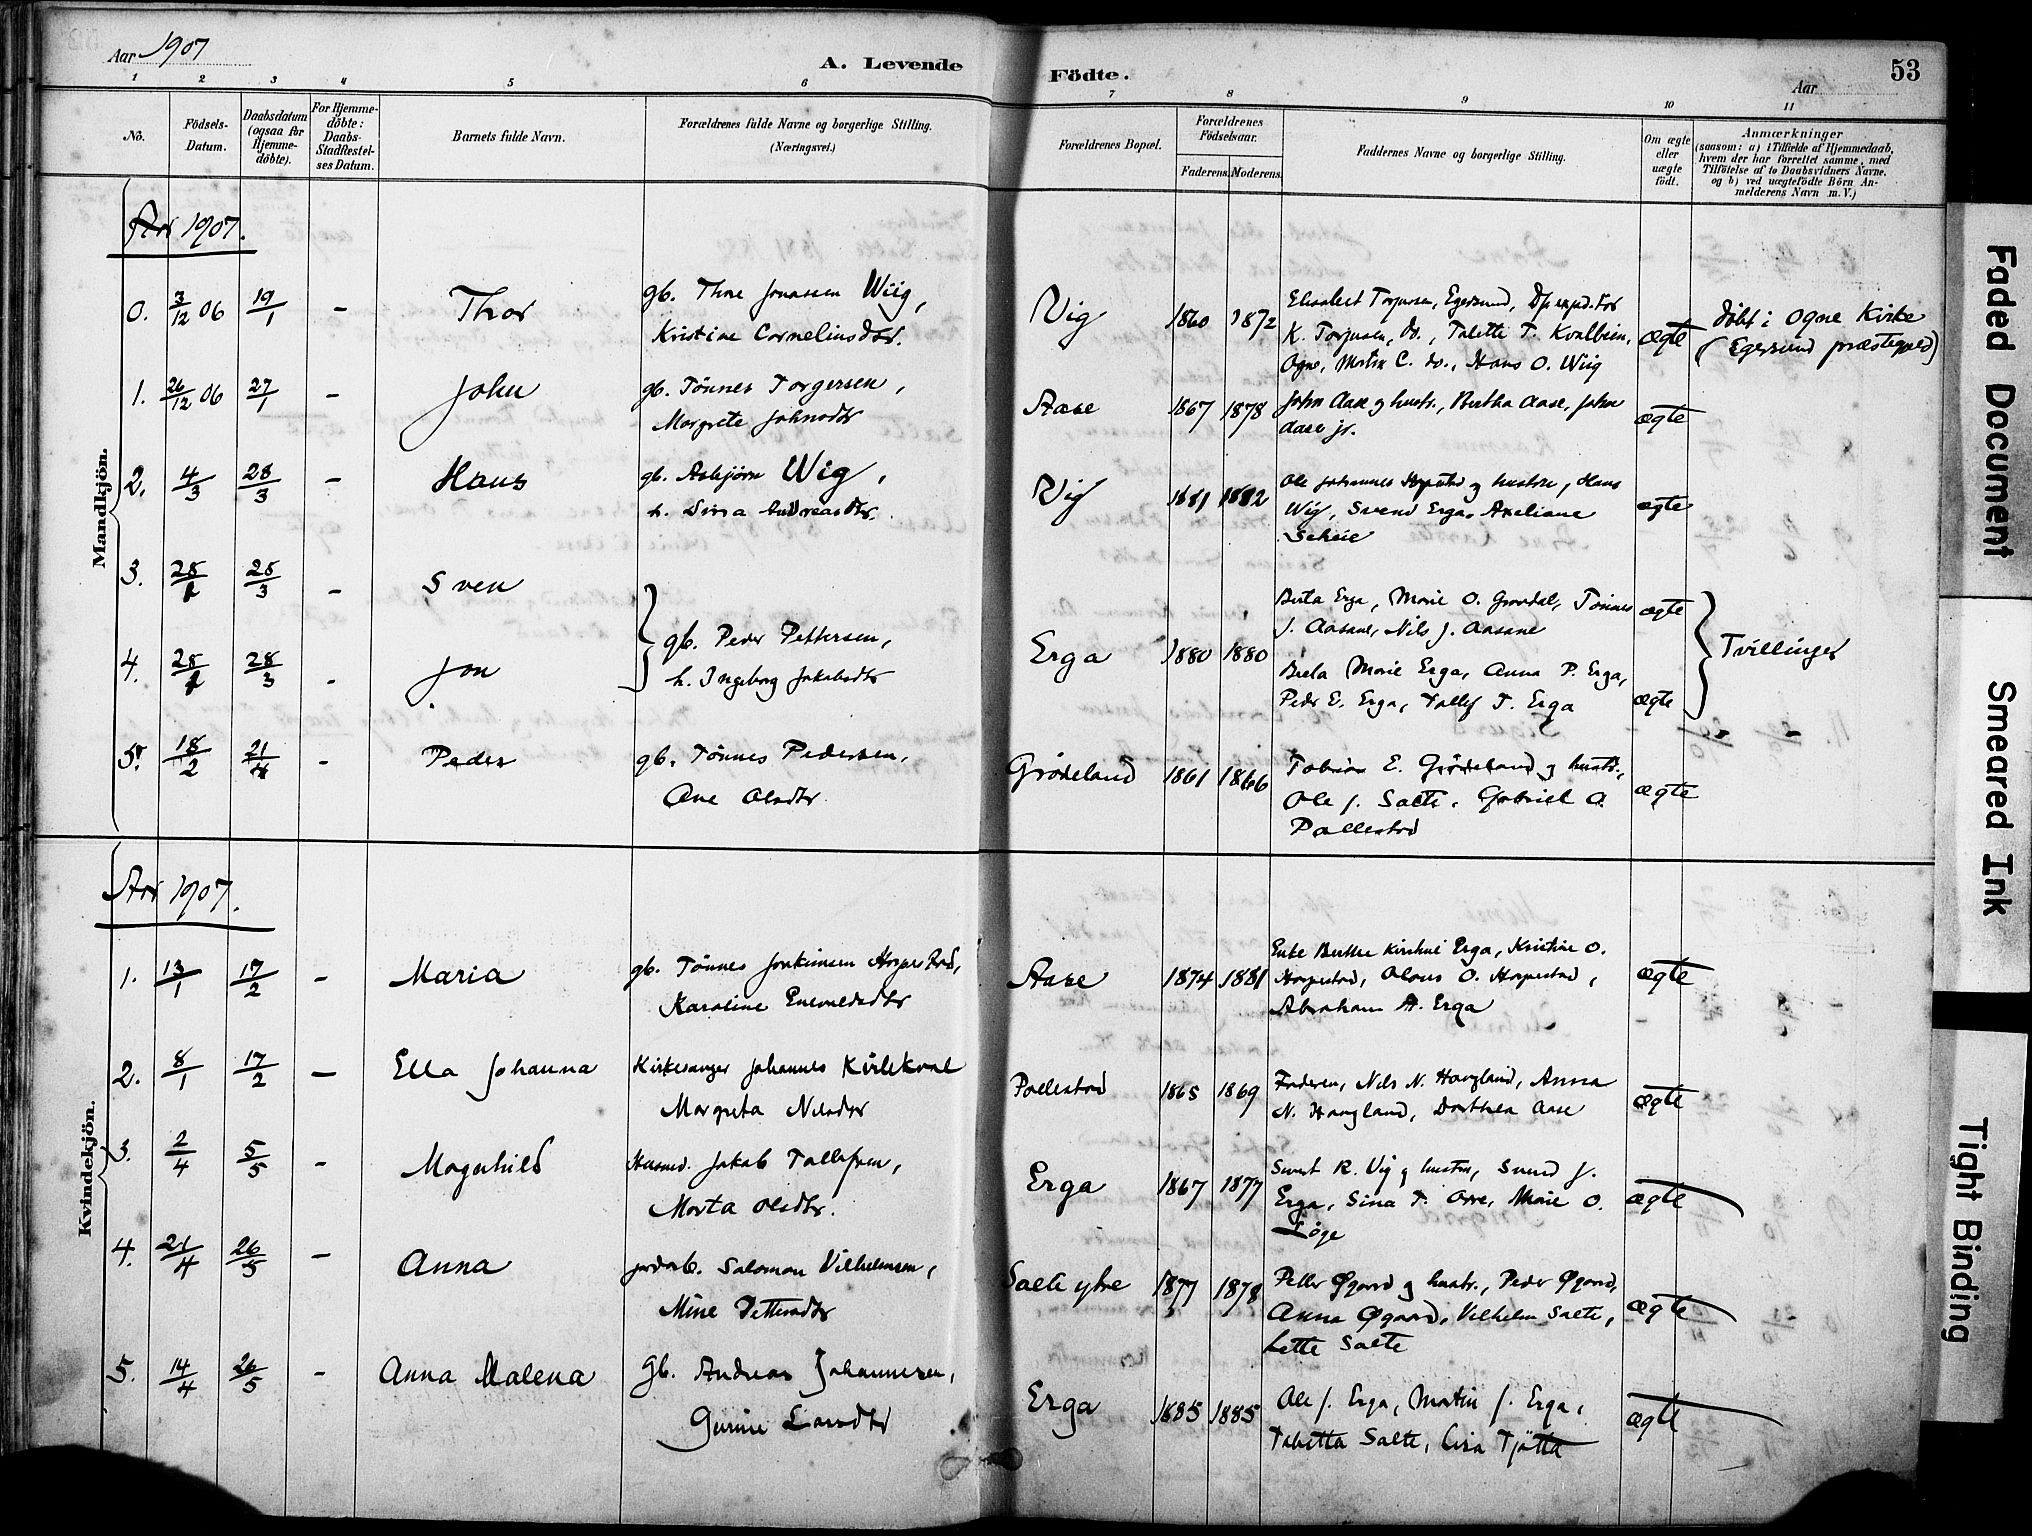 Aar 1907
A. Levende Födte.
Aar
53
1 2 3 4 5 6 7 8 9 10 11
No.
Födsels-Datum.
Daabsdatum (ogsaa for Hjemme-döbte).
For Hjemme-döbte: Daabs-Stadfestel-ses Datum.
Barnets fulde Navn.
Forældrenes fulde Navne og borgerlige Stilling.
(Næringsvei.)
Forældrenes Bopæl.
Forældrenes Födselsaar.
Faderens. Moderens.
Faddernes Navne og borgerlige Stilling.
Om ægte eller uægte födt.
Anmærkninger
(saasom: a) i Tilfælde af Hjemmedaab,
hvem der har forrettet samme, med
Tilföielse af to Daabsvidners Navne.
og b) ved uægtefödte Börn An-
melderens Navn m. V.)
Mandkjön.
Aar 1907.
0. 3/12 06 19/1 - Thor gb. Thore Jonassen Wiig, Vig 1860 1872 Elisabet Torjusen, Egersund,
Kristine Corneliusdtr. K. Torjusen, do., Talette T. Kvalbein, ægte döbt i Ogne Kirke
Ogne, Martin C. do., Hans O. Wiig (Egersund præstegjeld)
1. 26/12 06 27/1 - John gb. Tönnes Torgersen, Aase 1867 1878 John Aase og hustr., Bertha Aase, John ægte
Margrete Johnsdtr Aase jr.
2. 4/3 28/3 - Hans gb. Asbjörn Wig, Vig 1881 1882 Ole Johannes og hustru, Hans ægte
h. Andreasdtr. Wig, Svend Erga, Axeliane
3. 28/1 28/3 - Sven Berta Erga, Marie O. Grøndal, Tönnes ægte
gb. Peder Pettersen, Erga 1880 1880 J. Aasane, Nils J. Aasane Tvillinger
4. 28/1 28/3 - Jon h. Ingeborg Jakobsdtr Berta Marie Erga, Anna P. Erga,
Peder E. Erga, Tollef T. Erga ægte
5. 18/2 21/4 - Peder gb. Tönnes Pedersen, Grödeland 1861 1866 Tobias E. Grödeland og hustr., ægte
Ane Olsdtr. Ole J. Salte, Gabriel O.
Pollestad
Kvindekjön.
Aar 1907.
1. 13/1 17/2 - Maria gb. Tönnes Joakimsen Horpestad, Aase 1874 1881 Enke Berthe Erga, Kristine O. ægte
Karoline Enevaldsdtr Horpestad, Olaus O. Horpestad,
Abraham A. Erga
2. 8/1 17/2 - Ella Johanna Kirkesanger Johannes Kirlekval Pollestad 1865 1869 Faderen, Nils N. Haugland, Anna ægte
Margreta Nilsdtr N. Haugland, Dorthea Aase
3. 2/4 5/5 - Magnhild Husmd. Jakob Tollefsen, Erga 1867 1877 Sivert R. Vig og hustru, Svend J. ægte
Marta Olsdtr. Erga, Sina T. Orre, Marie O.
Löge
4. 21/4 26/5 - Anna jordarb. Salomon Vilhelmsen, Salte ytre 1877 1878 Petter Øgaard og hustr., Peder Øgaard, ægte
Mine Pettersdtr Anna Øgaard, Vilhelm Salte,
Lette Salte
5. 14/4 26/5 - Anna Malena gb. Andreas Johannesen, Erga 1885 1885 Ole J. Erga, Martin J. Erga, ægte
Gurine Larsdtr Tabitta Salte, Lisa Tjötta
Faded Document
Smeared Ink
Tight Binding